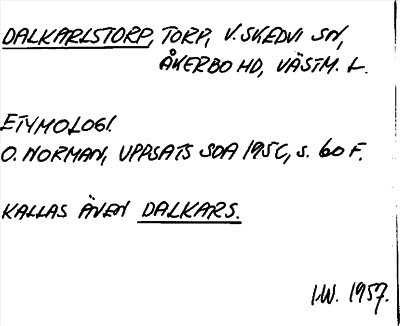 DALKARLSTORP, TORP, V. SKEDVI SN,
ÅKERBO HD, VÄSTM. L.
ETYMOLOGI.
O. NORMAN, UPPSATS SOA 1950, S. 60 F.
KALLAS ÄVEN DALKARS.
I.W. 1957.